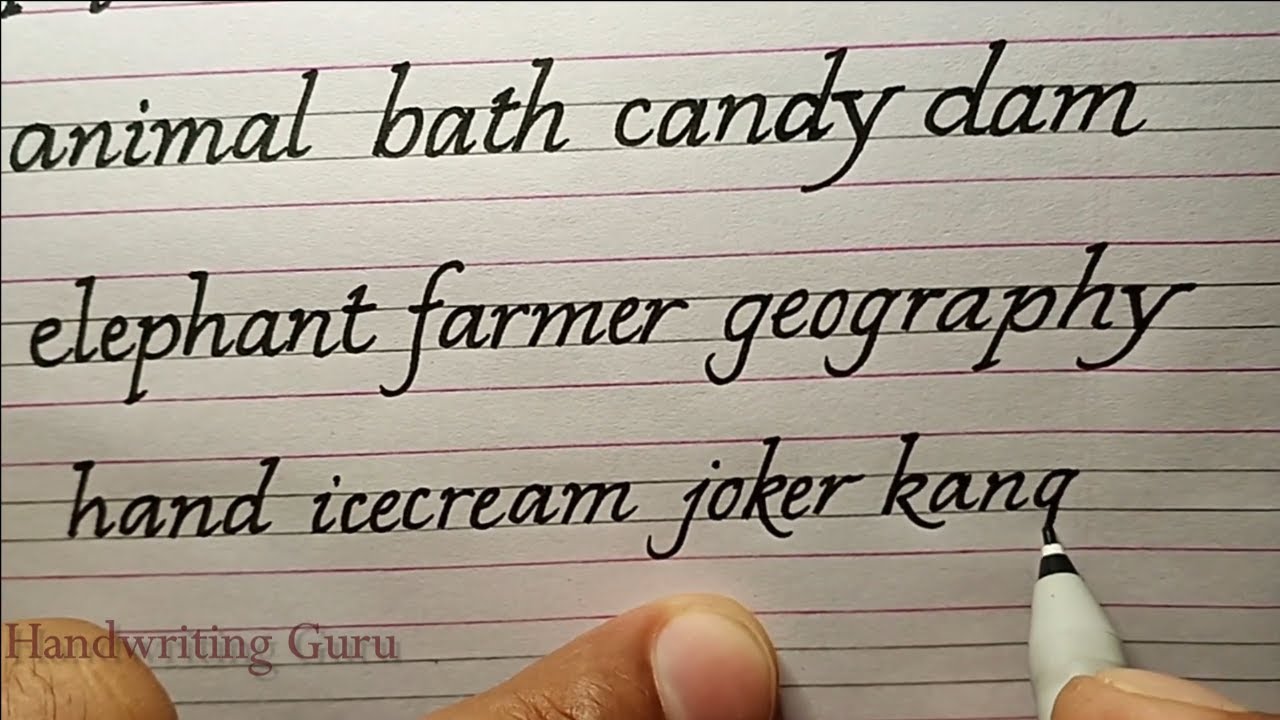 animal bath candy dam
elephant farmer geography
hand icecream joker kang
Handwriting Guru